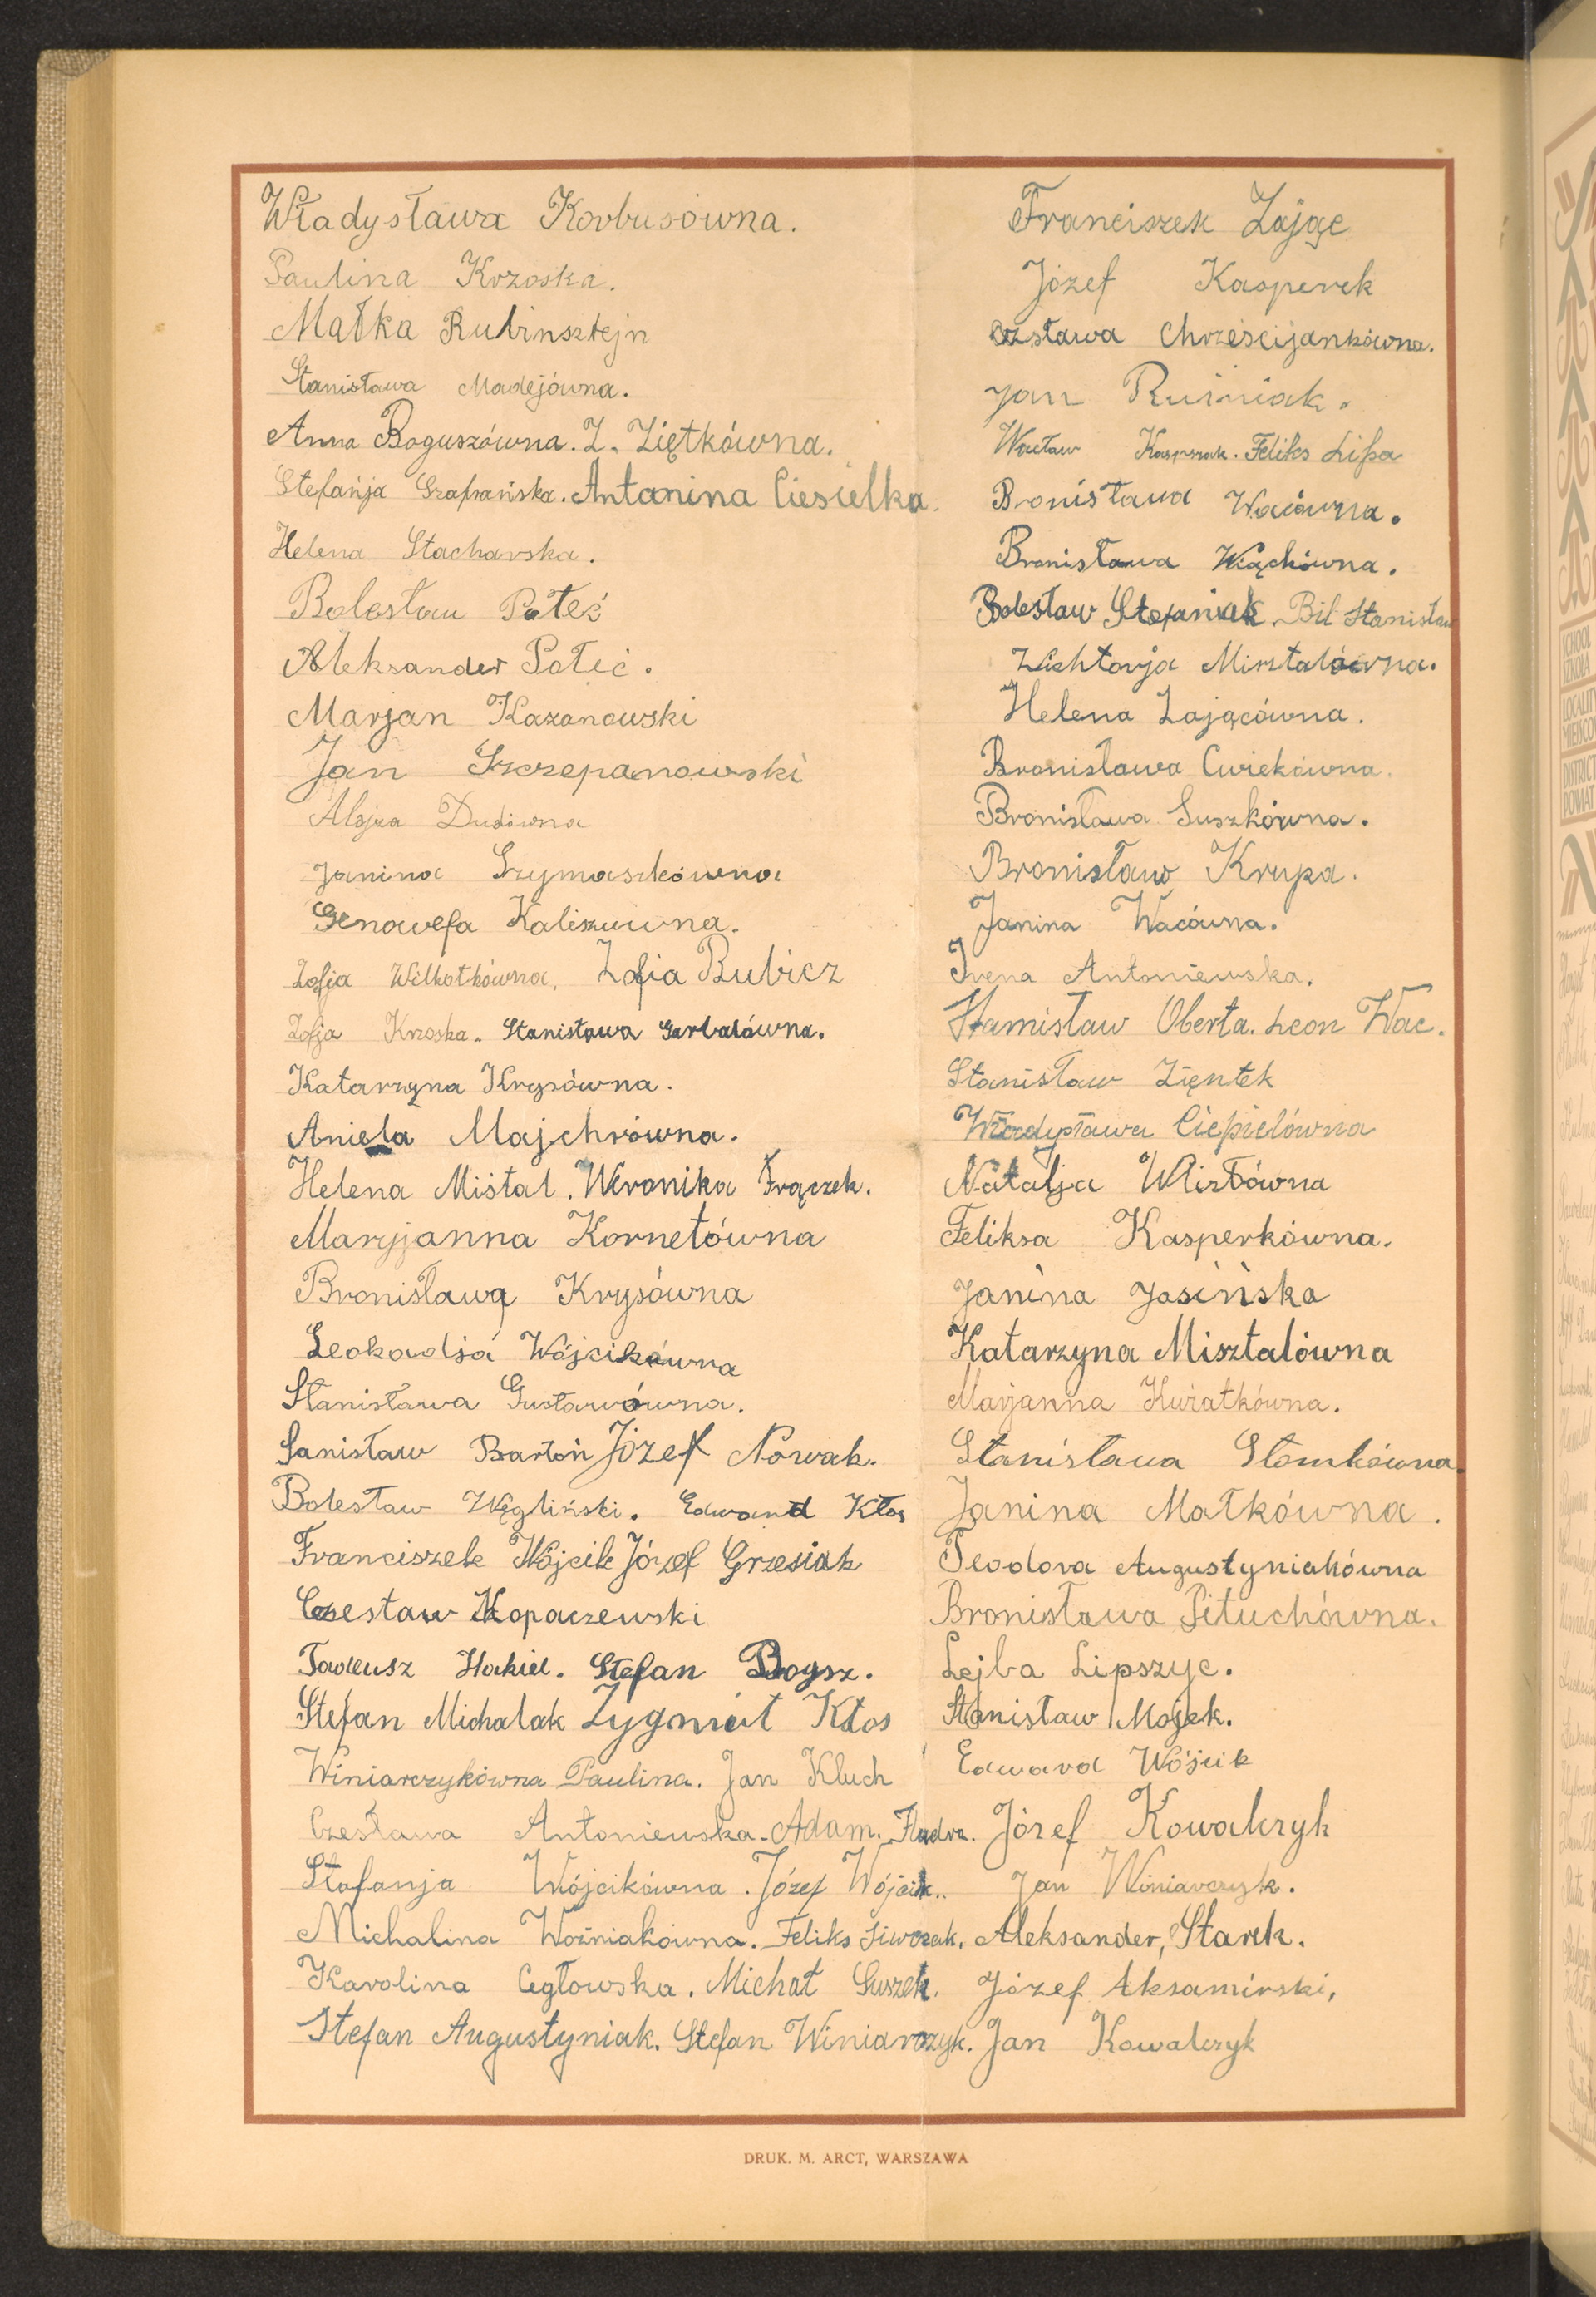 Władysława Korbusówna.
Paulina Krzoska.
Małka Rubinsztejn
Stanisława Madejówna.
Anna Boguszówna. Z. Ziętkówna.
Stefanja Szafrańska. Antonina Ciesielka.
Helena Stacharska.
Bolesław Połeć
Aleksander Połeć.
Marjan Kazanowski
Jan Szczepanowski
Alojza Dudówna
Janina Szymaszkówna
Genowefa Kaliszuwna.
Zofja Wilkotkówna, Zofia Bubicz
Zofja Krzoska. Stanisława Garbalówna.
Katarzyna Krysówna.
Aniela Majchrówna.
Helena Miśtal. Weronika Frączek.
Maryjanna Kornetówna
Bronisława Krysówna
Leokadja Wójcikówna
Stanisława Gustawówna.
Sanisław Bartoń Józef Nowak.
Bolesław Węgliński. Edward Kłos
Franciszek Wójcik Józef Grzesiak
Czesław Kopaczewski
Tadeusz Hakiel. Stefan Bogsz.
Stefan Michalak Zygmót Kłos
Winiarczykówna Paulina. Jan Kluch
Czesława Antoniewska. Adam. Fladra.
Stefanja Wójcikówna. Józef Wójcik..
Michalina Woźniakówna. Feliks Siwczak.
Karolina Cegłowska. Michał Guszek.
Stefan Augustyniak. Stefan Winiarczyk.
Franciszek Zając
Józef Kasperek
Czsława Chrześcijankówna.
Jan Ruśniak.
Wacław Kasprzak. Feliks Lipa
Bronisława Wacówna.
Bronisława Wąchówna.
Bolesław Stefaniak. Bil Stanisław
Wichtorja Misztalówna.
Helena Zającówna.
Bronisława Cwiekówna.
Bronisława Suszkówna.
Bronisław Krupa.
Janina Wacówna.
Irena Antoniewska.
Stamisław Oberta. Leon Wac.
Stanisław Zięntek
Władysława Ciepielówna
Natalja Wlizłówna
Feliksa Kasperkówna.
Janina Jasińska
Katarzyna Misztalówna
Marjanna Kwiatkówna.
Stanisława Słomkówna.
Janina Małkówna.
Teodora Augustyniakówna
Bronisława Pituchówna.
Lejba Lipszyc.
Stanisław Mojek.
Edward Wójcik
Józef Kowalczyk
Jan Winiarczyk.
Aleksander, Starek.
Józef Aksamirski,
Jan Kowalczyk
DRUK. M. ARCT, WARSZAWA
SCHOOL
SZKOŁA